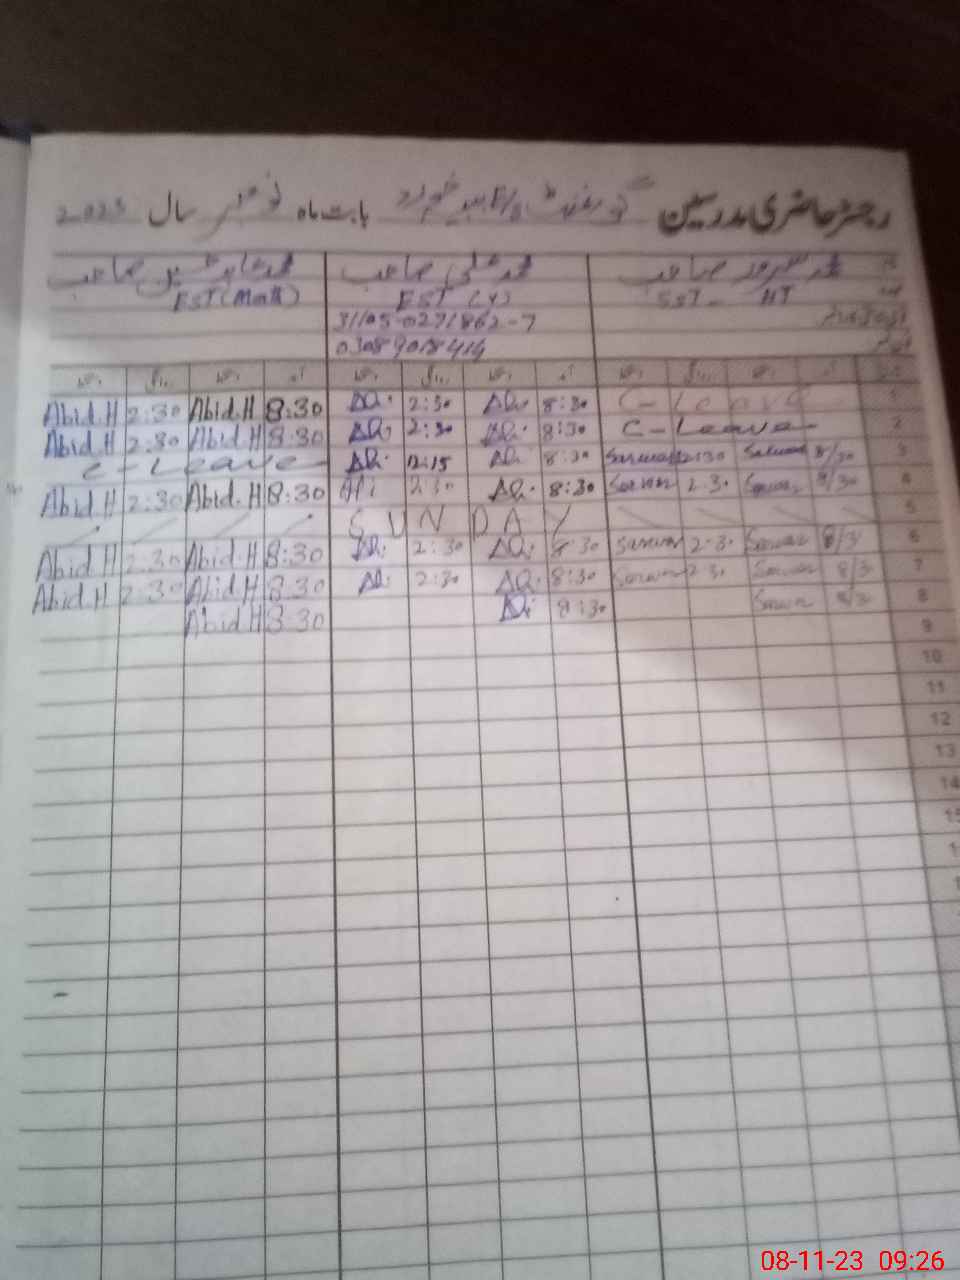 رجسٹر حاضری مدرسین گورنمنٹ بابت ماہ نومبر سال 2023
محمد سرور صاحب محمد علی صاحب محمد عابد حسین صاحب
SST - HT EST (v) EST (Math)
31105-0271862-7
03089018414
1 C-Leave 8:30 Ali 2:30 Ali 8:30 Abid.H 2:30 Abid.H
2 C-Leave 8:30 Ali 2:30 Ali 8:30 Abid.H 2:30 Abid.H
3 8/30 Sarwar 2:30 Sarwar 8:30 Ali 12:15 Ali C-Leave
4 8/30 Sarwar 2:30 Sarwar 8:30 Ali 2:30 Ali 8:30 Abid.H 2:30 Abid.H
5 SUNDAY
6 8/30 Sarwar 2:30 Sarwar 8:30 Ali 2:30 Ali 8:30 Abid H 2:30 Abid H
7 8/30 Sarwar 2:30 Sarwar 8:30 Ali 2:30 Ali 8:30 Abid.H 2:30 Abid.H
8 8/30 Sarwar 8:30 Ali 8:30 Abid H
9
10
11
12
13
14
08-11-23 09:26